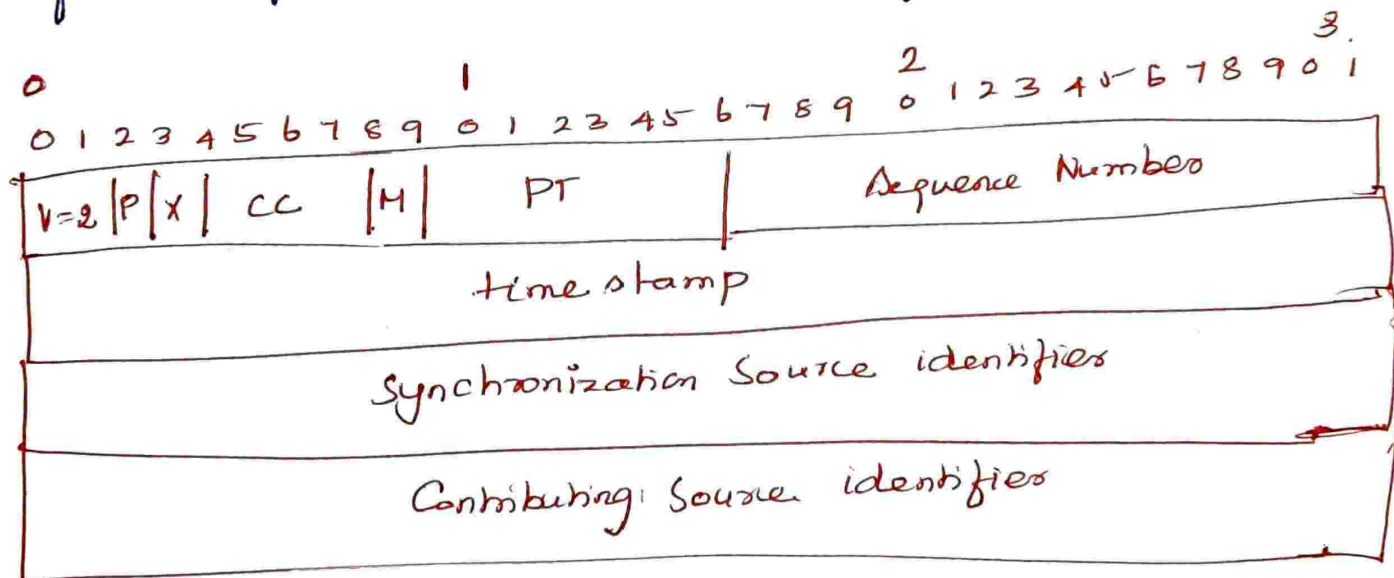 0 1 2 3.
0 1 2 3 4 5 6 7 8 9 0 1 2 3 4 5 6 7 8 9 0 1 2 3 4 5 6 7 8 9 0 1
V=2 | P | X | CC | M | PT | Sequence Number
time stamp
Synchronization Source identifier
Contributing Source identifier